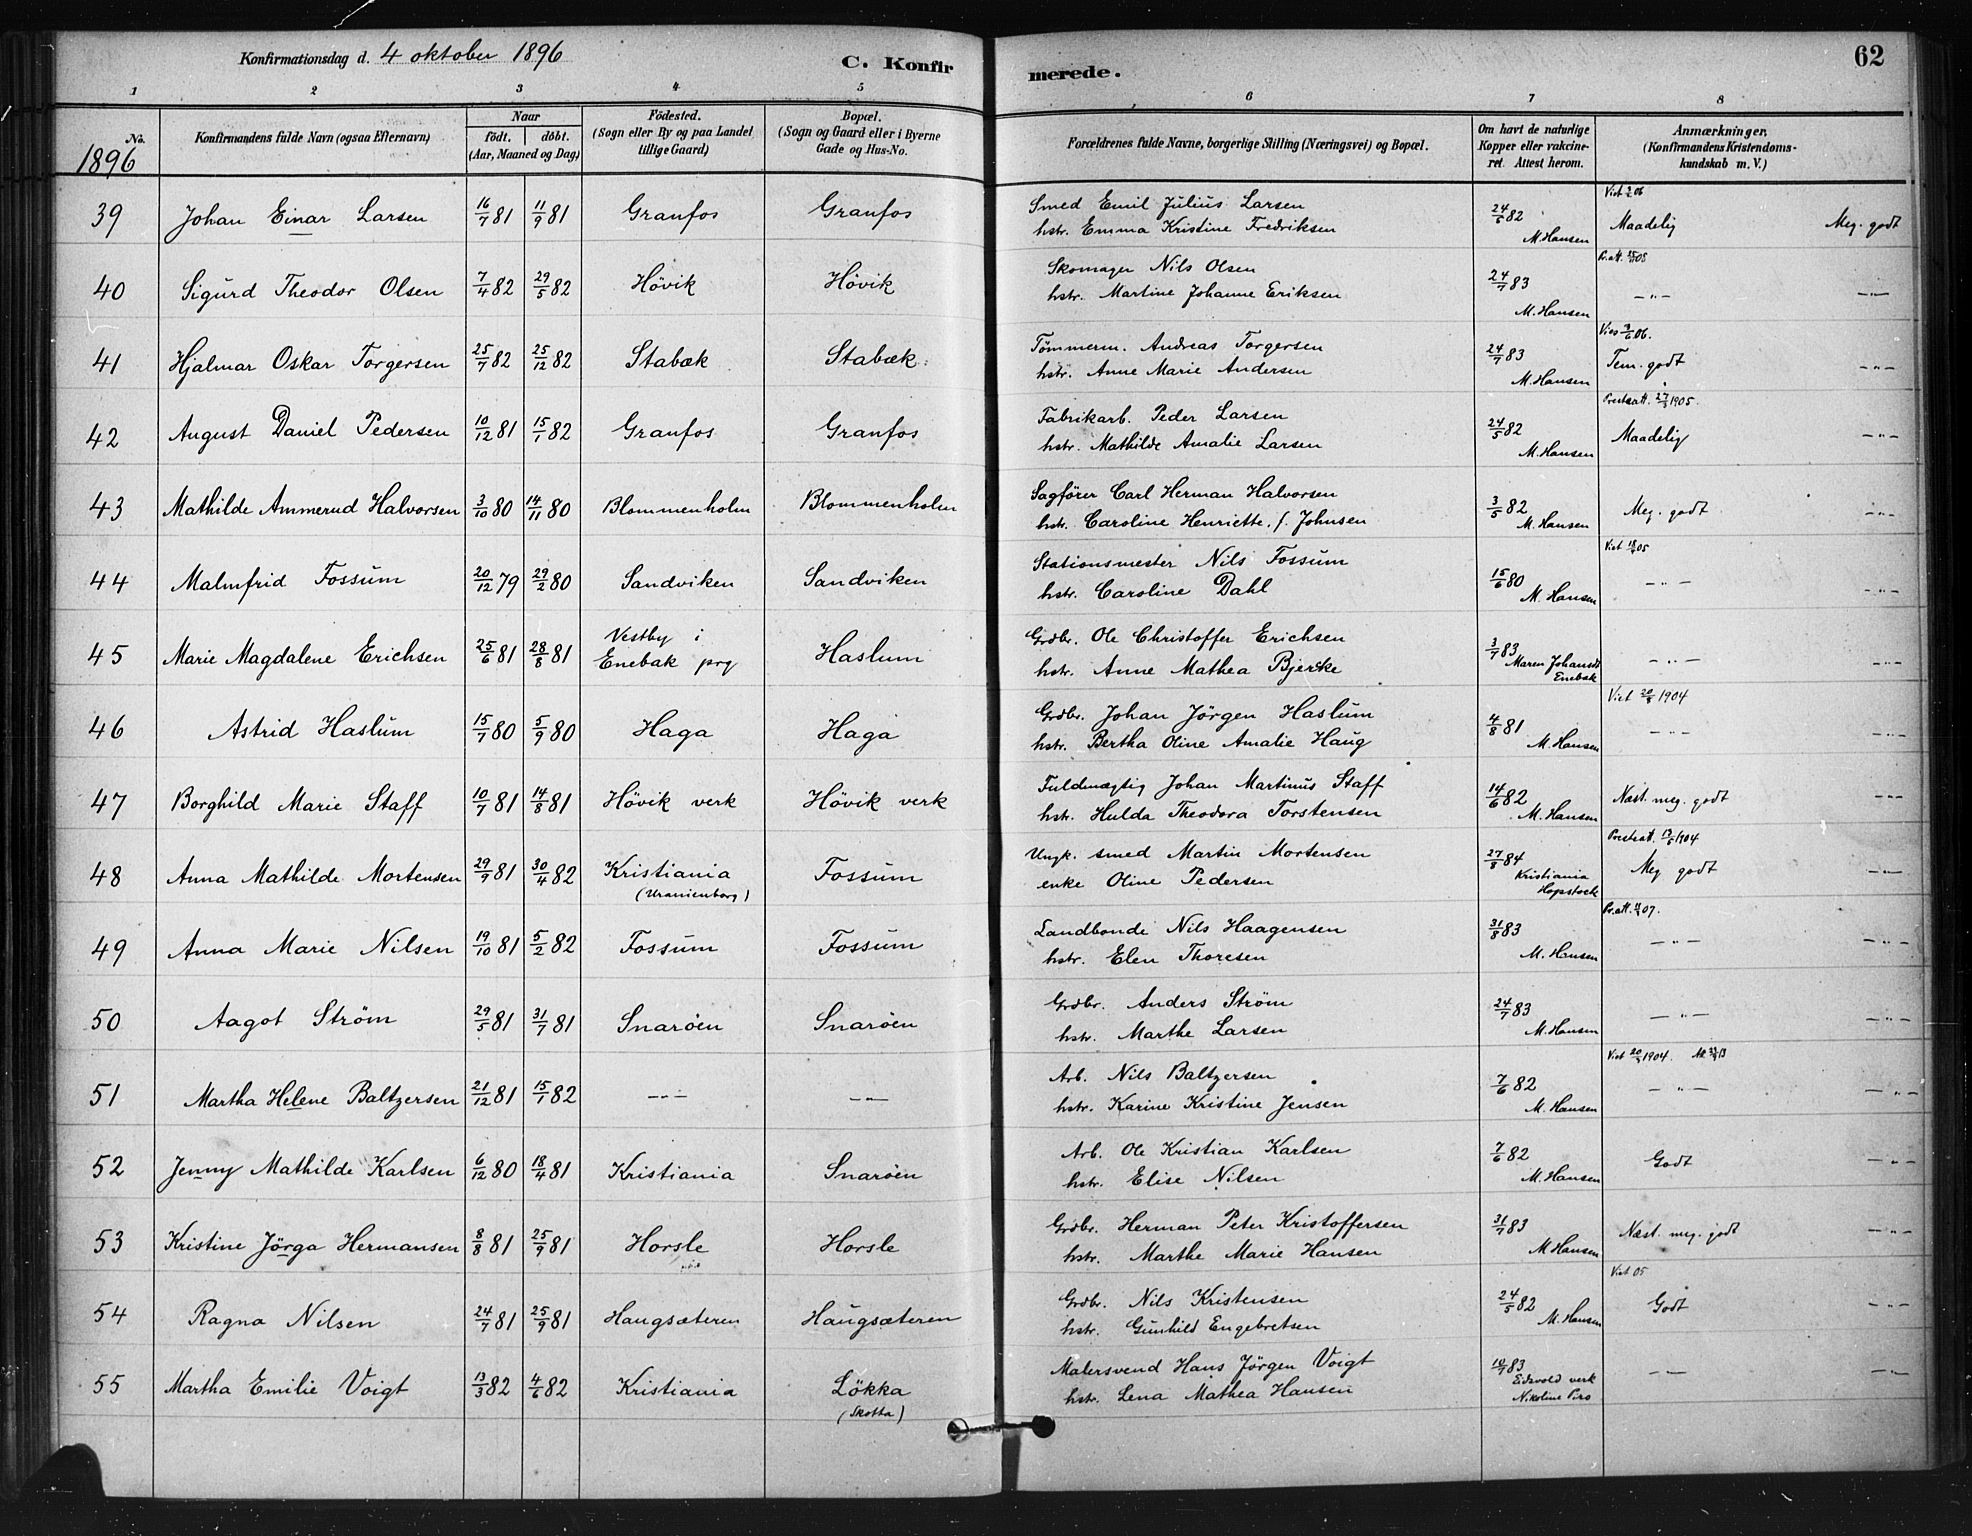 Konfirmationsdag d. 4 oktober 1896
C. Konfirmerede.
62
1 2 3 4 5 6 7 8
No.
1896
Konfirmandens fulde Navn (ogsaa Efternavn)
Naar
født. døbt.
(Aar, Maaned og Dag)
Födested.
(Sogn eller By og paa Landet
tillige Gaard)
Bopæl.
(Sogn og Gaard eller i Byerne
Gade og Hus-No.
Forældrenes fulde Navne, borgerlige Stilling (Næringsvei) og Bopæl.
Om havt de naturlige
Kopper eller vakcine-
ret. Attest herom.
Anmærkninger.
(Konfirmandens Kristendoms-
kundskab m. V.)
39 Johan Einar Larsen 16/7 81 11/9 81 Granfos Granfos
Smed Emil Julius Larsen
hstr. Emma Kristine Fredriksen
24/5 82 M. Hansen
Maadelig Meg. godt
40 Sigurd Theodor Olsen 7/4 82 29/5 82 Hövik Hövik
Skomager Nils Olsen
hstr. Martine Johanne Eriksen
24/7 83 M. Hansen
— " — — " —
41 Hjalmar Oskar Torgersen 25/7 82 25/12 82 Stabæk Stabæk
Tömmerm. Andreas Torgersen
hstr. Anne Marie Andersen
24/7 83 M. Hansen
Tem. godt — " —
42 August Daniel Pedersen 10/12 81 15/1 82 Granfos Granfos
Fabrikarb. Peder Larsen
hstr. Mathilde Amalie Larsen
24/5 82 M. Hansen
Maadelig — " —
43 Mathilde Ammerud Halvorsen 3/10 80 14/11 80 Blommenholm Blommenholm
Sagförer Carl Herman Halvorsen
hstr. Caroline Henriette f. Johnsen
3/5 82 M. Hansen
Meg. godt — " —
44 Malmfrid Fossum 20/12 79 29/2 80 Sandviken Sandviken
Stationsmester Nils Fossum
hstr. Caroline Dahl
15/6 80 M. Hansen
— " — — " —
45 Marie Magdalene Erichsen 25/6 81 28/8 81 Vestby i
Enebak prg Haslum
Grdbr. Ole Christoffer Erichsen
hstr. Anne Mathea Bjercke
3/7 83 Maren Johansdt
Enebak
— " — — " —
46 Astrid Haslum 15/7 80 5/9 80 Haga Haga
Grdbr. Johan Jörgen Haslum
hstr. Bertha Oline Amalie Haug
4/8 81 M. Hansen
— " — — " —
47 Borghild Marie Staff 10/7 81 14/8 81 Hövik verk Hövik verk
Fuldmægtig Johan Martinus Staff
hstr. Hulda Theodora Torstensen
14/6 82 M. Hansen
Næst. meg. godt — " —
48 Anna Mathilde Mortensen 29/9 81 30/4 82 Kristiania
(Uranienborg) Fossum
Ungk. smed Martin Mortensen
enke Oline Pedersen
27/8 84 Kristiania
Hopstock
Meg godt — " —
49 Anna Marie Nilsen 19/10 81 5/2 82 Fossum Fossum
Landbonde Nils Haagensen
hstr. Elen Thoresen
31/8 83 M. Hansen
— " — — " —
50 Aagot Ström 29/5 81 31/7 81 Snaröen Snaröen
Grdbr. Anders Ström
hstr. Marthe Larsen
24/7 83 M. Hansen
— " — — " —
51 Martha Helene Baltzersen 21/12 81 15/1 82 — " — — " —
Arb. Nils Baltzersen
hstr. Karine Kristine Jensen
7/6 82 M. Hansen
— " — — " —
52 Jenny Mathilde Karlsen 6/12 80 18/4 81 Kristiania Snaröen
Arb. Ole Kristian Karlsen
hstr. Elise Nilsen
7/6 82 M. Hansen
Godt — " —
53 Kristine Jörga Hermansen 8/8 81 25/9 81 Horsle Horsle
Grdbr. Herman Peter Kristoffersen
hstr. Marthe Marie Hansen
31/7 83 M Hansen
Næst. meg. godt — " —
54 Ragna Nilsen 24/7 81 25/9 81 Haugsæteren Haugsæteren
Grdbr. Nils Kristensen
hstr. Gunhild Engebretsen
24/5 82 M. Hansen
Viet 05
Godt — " —
55 Martha Emilie Voigt 13/3 82 4/6 82 Kristiania Lökka
(Skotta)
Malersvend Hans Jörgen Voigt
hstr. Lena Mathea Hansen
10/7 83
Eidsvold verk
Nikoline
— " — — " —